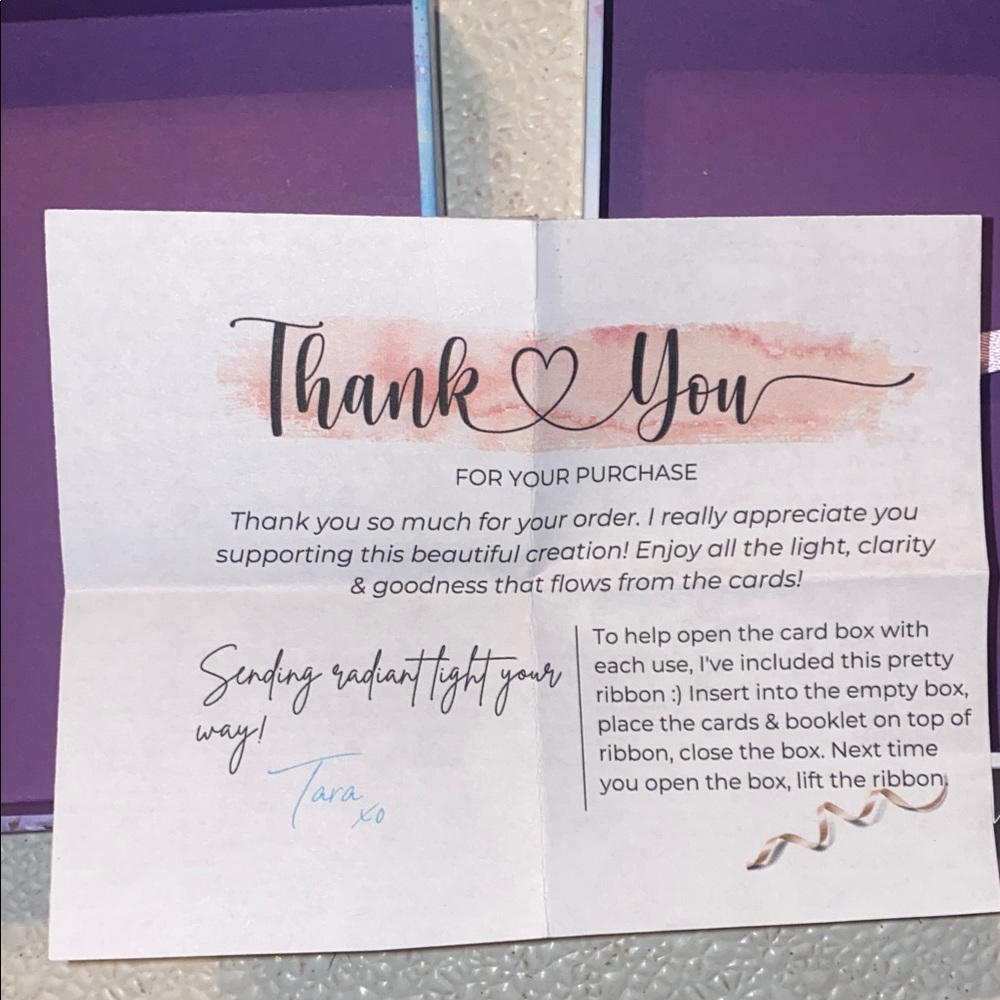 Thank You
FOR YOUR PURCHASE
Thank you so much for your order. I really appreciate you
supporting this beautiful creation! Enjoy all the light, clarity
& goodness that flows from the cards!
Sending radiant light your
way!
Tara
xo
To help open the card box with
each use, I've included this pretty
ribbon :) Insert into the empty box,
place the cards & booklet on top of
ribbon, close the box. Next time
you open the box, lift the ribbon.